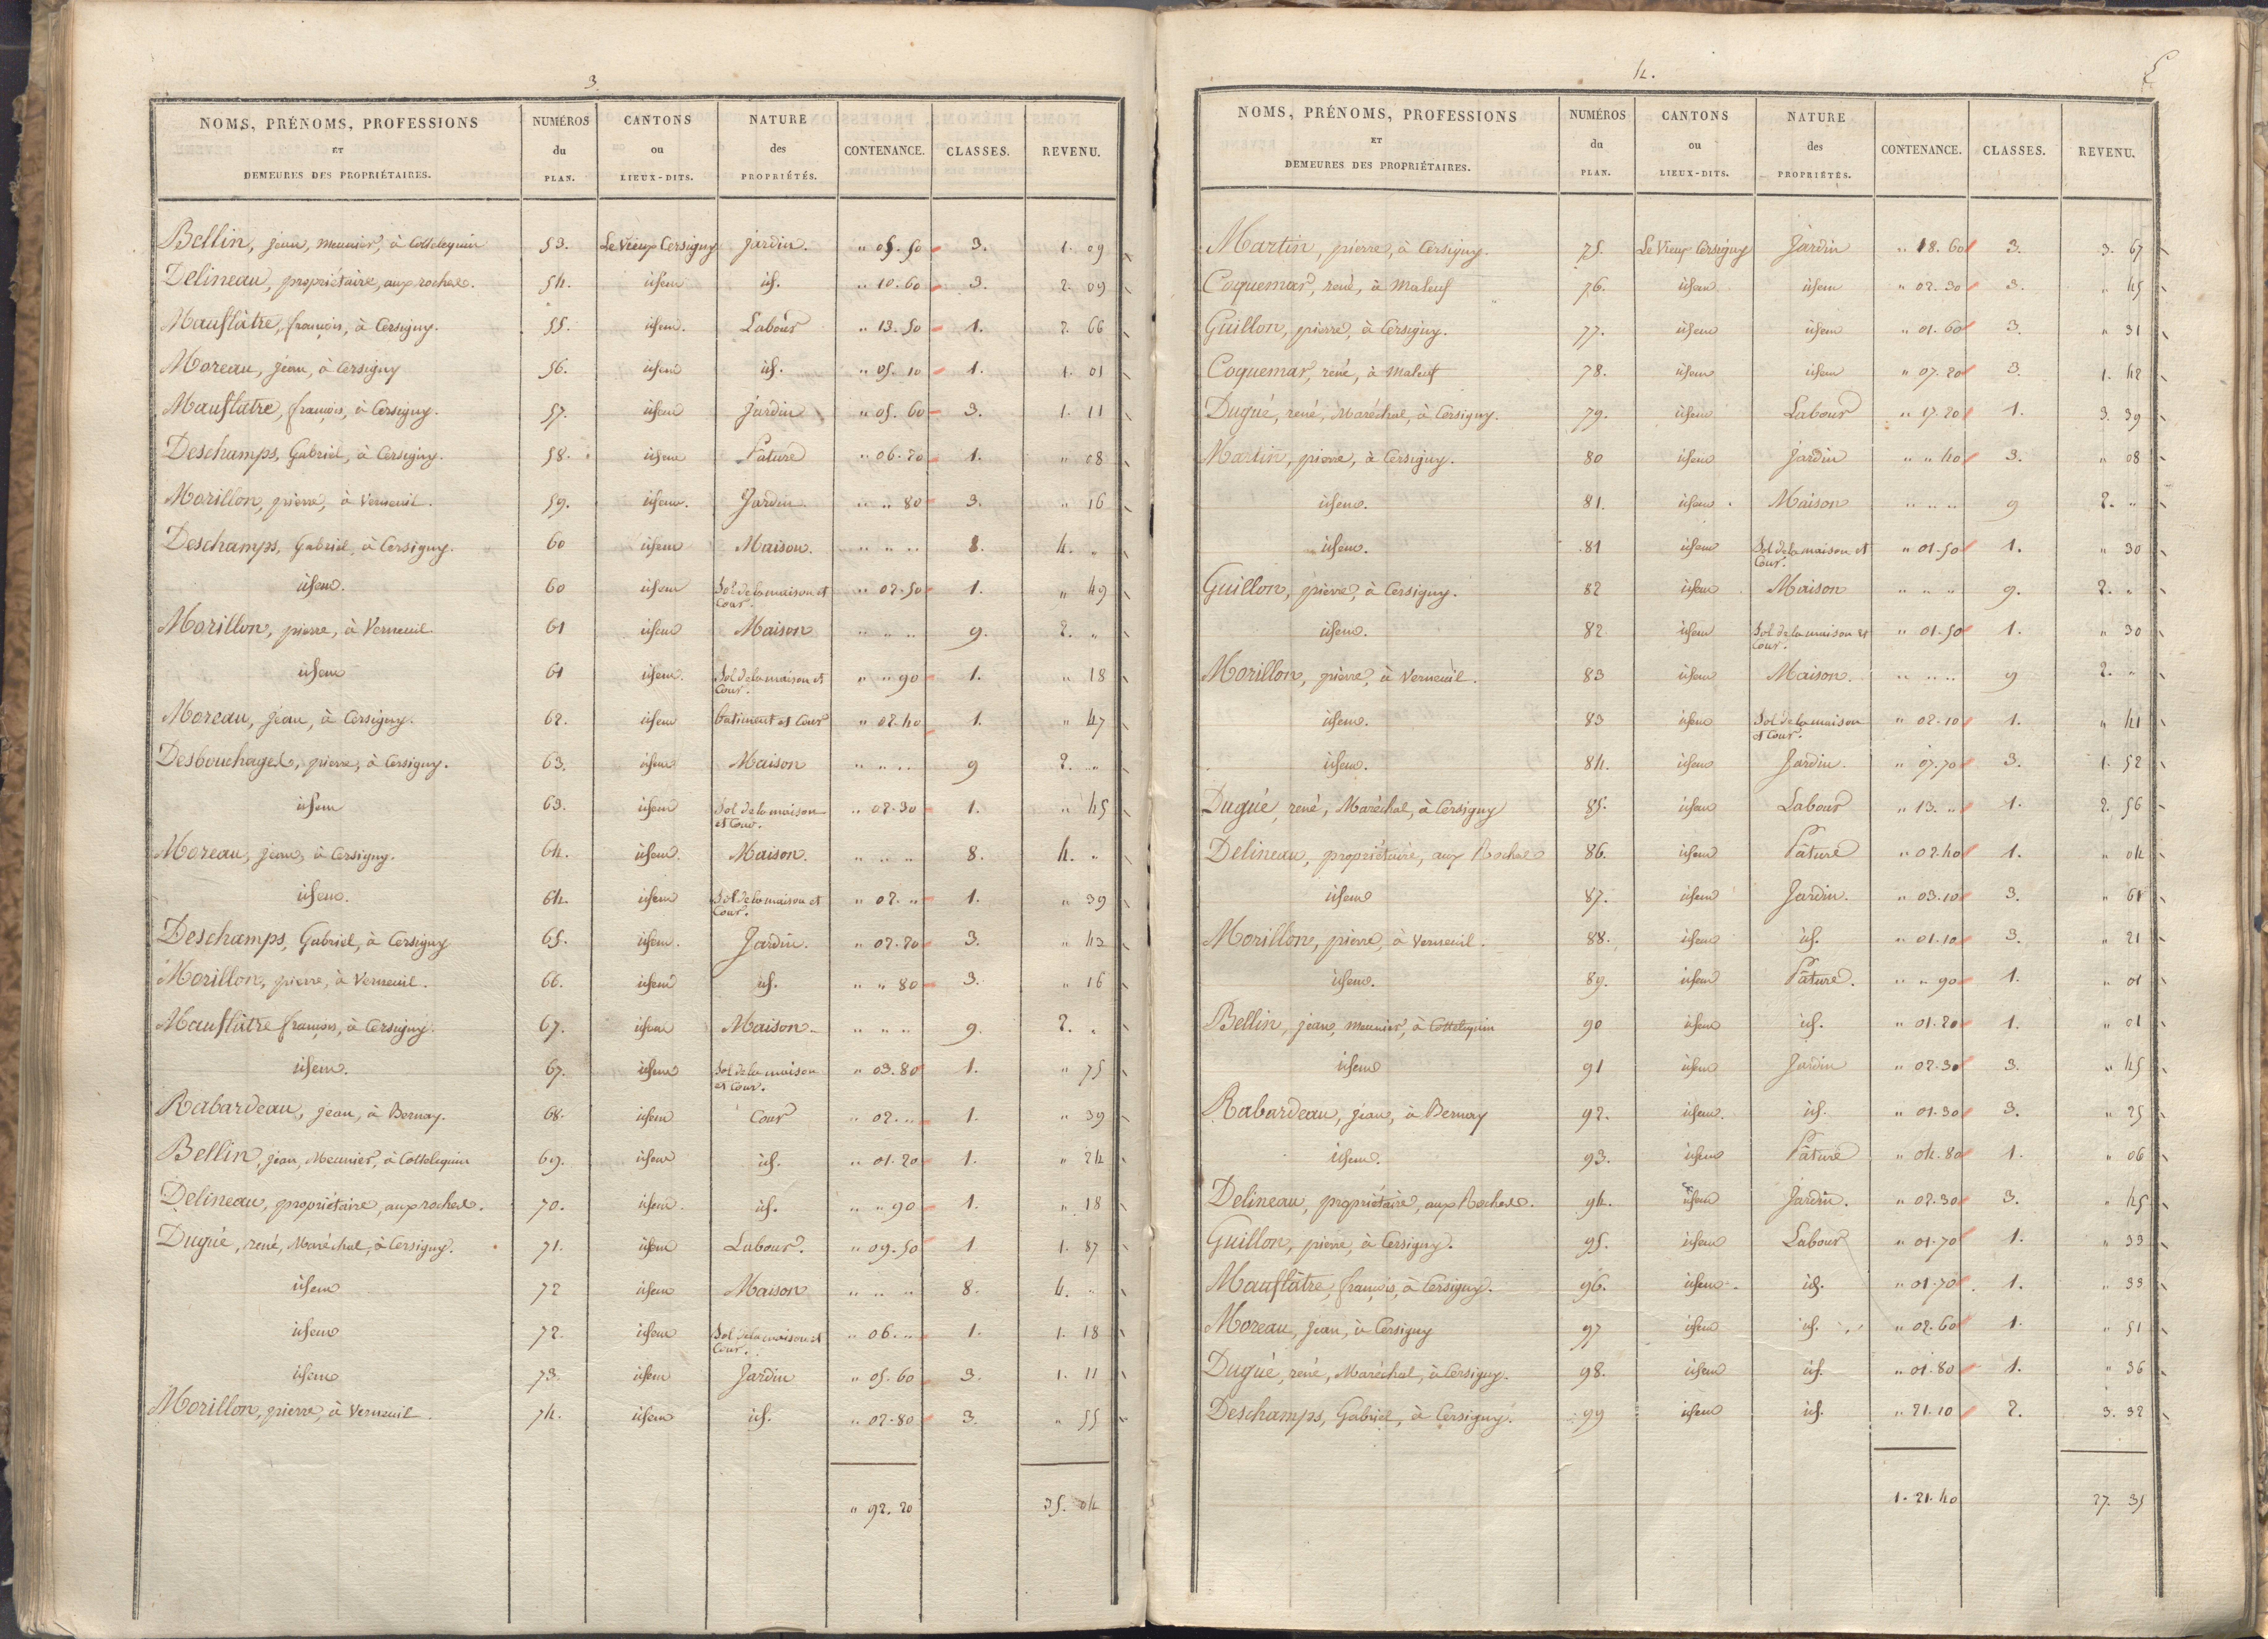 3
NOMS, PRÉNOMS, PROFESSIONS
ET
DEMEURES DES PROPRIÉTAIRES.
NUMÉROS
du
PLAN.
CANTONS
ou
LIEUX-DITS.
NATURE
des
PROPRIÉTÉS.
CONTENANCE.
CLASSES.
REVENU.
Bellin, jean, meunier, à Cottelequin 53. Le Vieux Cersigny jardin. " 05. 50 3. 1. 09
Delineau, propriétaire, aux roches. 54. idem id. " 10. 60 3. 2. 09
Mauflâtre, françois, à Cersigny. 55. idem. Labour " 13. 50 1. 2. 66
Moreau, jean, à Cersigny 56. idem id. " 05. 10 1. 1. 01
Mauflatre, françois, à Cersigny. 57. idem Jardin " 05. 60 3. 1. 11
Deschamps, Gabriel, à Cersigny. 58. idem Pature " 06. 20 1. " 08
Morillon, pierre, à Verneuil. 59. idem. Jardin " " 80 3. " 16
Deschamps, Gabriel, à Cersigny. 60 idem Maison. " " " 8. 4. "
idem. 60 idem Sol de la maison et Cour. " 02. 50 1. " 49
Morillon, pierre, à Verneuil 61 idem Maison " " " 9. 2. "
idem 61 idem. Sol de la maison et Cour. " " 90 1. " 18
Moreau, jean, à Cersigny. 62. idem batiment et Cour " 02. 40 1. " 47
Desbouchages, pierre, à Cersigny. 63. idem Maison " " " 9 2. "
idem 63. idem Sol de la maison et Cour. " 02. 30 1. " 45
Moreau, jean, à Cersigny. 64. idem. Maison. " " " 8. 4. "
idem. 64. idem Sol de la maison et Cour. " 02. " 1. " 39
Deschamps, Gabriel, à Cersigny 65. idem. Jardin. " 02. 20 3. " 43
Morillon, pierre, à Verneuil. 66. idem id. " " 80 3. " 16
Mauflâtre françois, à Cersigny. 67. idem Maison " " " 9. 2. "
idem. 67. idem Sol de la maison et Cour. " 03. 80 1. " 75
Rabardeau, jean, à Bernay. 68. idem Cour " 02. " 1. " 39
Bellin, jean, Meunier, à Cottelequin 69. idem id. " 01. 20 1. " 24
Delineau, propriétaire, aux roches. 70. idem id. " " 90 1. " 18
Dugué, rené, Maréchal, à Cersigny. 71. idem Labour. " 09. 50 1 1. 87
idem 72 idem Maison " " " 8. 4. "
idem 72. idem Sol de la maison et Cour. " 06. " 1. 1. 18
idem 73. idem Jardin " 05. 60 3. 1. 11
Morillon, pierre, à Verneuil. 74. idem id. " 02. 80 3. " 55
" 92. 20 35. 04
4.
NOMS, PRÉNOMS, PROFESSIONS
ET
DEMEURES DES PROPRIÉTAIRES.
NUMÉROS
du
PLAN.
CANTONS
ou
LIEUX-DITS.
NATURE
des
PROPRIÉTÉS.
CONTENANCE.
CLASSES.
REVENU.
Martin, pierre, à Cersigny. 75. Le Vieux Cersigny Jardin " 18. 60 3. 3. 67
Coquemar, rené, à Maleuf 76. idem idem " 02. 30 3. " 45
Guillon, pierre, à Cersigny. 77. idem idem " 01. 60 3. " 31
Coquemar, rené, à Maleuf 78. idem idem " 07. 20 3 1. 42
Dugué, rené, Maréchal, à Cersigny. 79. idem Labour " 17. 20 1. 3. 39
Martin, pierre, à Cersigny. 80 idem Jardin " " 40 3. " 08
idem. 81. idem. Maison " " " 9 2. "
idem. 81 idem Sol de la maison et Cour. " 01. 50 1. " 30
Guillon, pierre, à Cersigny. 82 idem Maison " " " 9. 2. "
idem. 82 idem Sol de la maison et Cour. " 01. 50 1. " 30
Morillon, pierre, à Verneuil. 83 idem Maison. " " " 9 2. "
idem. 83 idem Sol de la maison et Cour. " 02. 10 1. " 41
idem. 84. idem Jardin. " 07. 70 3. 1. 52
Dugué, rené, Maréchal, à Cersigny 85. idem Labour " 13. " 1. 2. 56
Delineau, propriétaire, aux Roches 86. idem Pâture " 02. 40 1. " 04
idem 87. idem Jardin. " 03. 10 3. " 61
Morillon, pierre, à Verneuil. 88. idem id. " 01. 10 3. " 21
idem. 89. idem Pâture. " " 90 1. " 01
Bellin, jean, meunier, à Cottelequin 90 idem id. " 01. 20 1. " 01
idem 91 idem Jardin " 02. 30 3. " 45
Rabardeau, jean, à Bernay 92. idem. id. " 01. 30 3. " 25
idem. 93. idem Pâture " 04. 80 1. " 06
Delineau, propriétaire, aux Roches. 94. idem Jardin. " 02. 30 3. " 45
Guillon, pierre, à Cersigny. 95. idem Labour " 01. 70 1. " 33
Mauflâtre, françois, à Cersigny. 96. idem. id. " 01. 70 1. " 33
Moreau, jean, à Cersigny 97 idem id. " 02. 60 1. " 51
Dugué, rené, Maréchal, à Cersigny. 98. idem id. " 01. 80 1. " 36
Deschamps, Gabriel, à Cersigny. 99 idem id. " 21. 10 2. 3. 32
1. 21. 40 27. 35